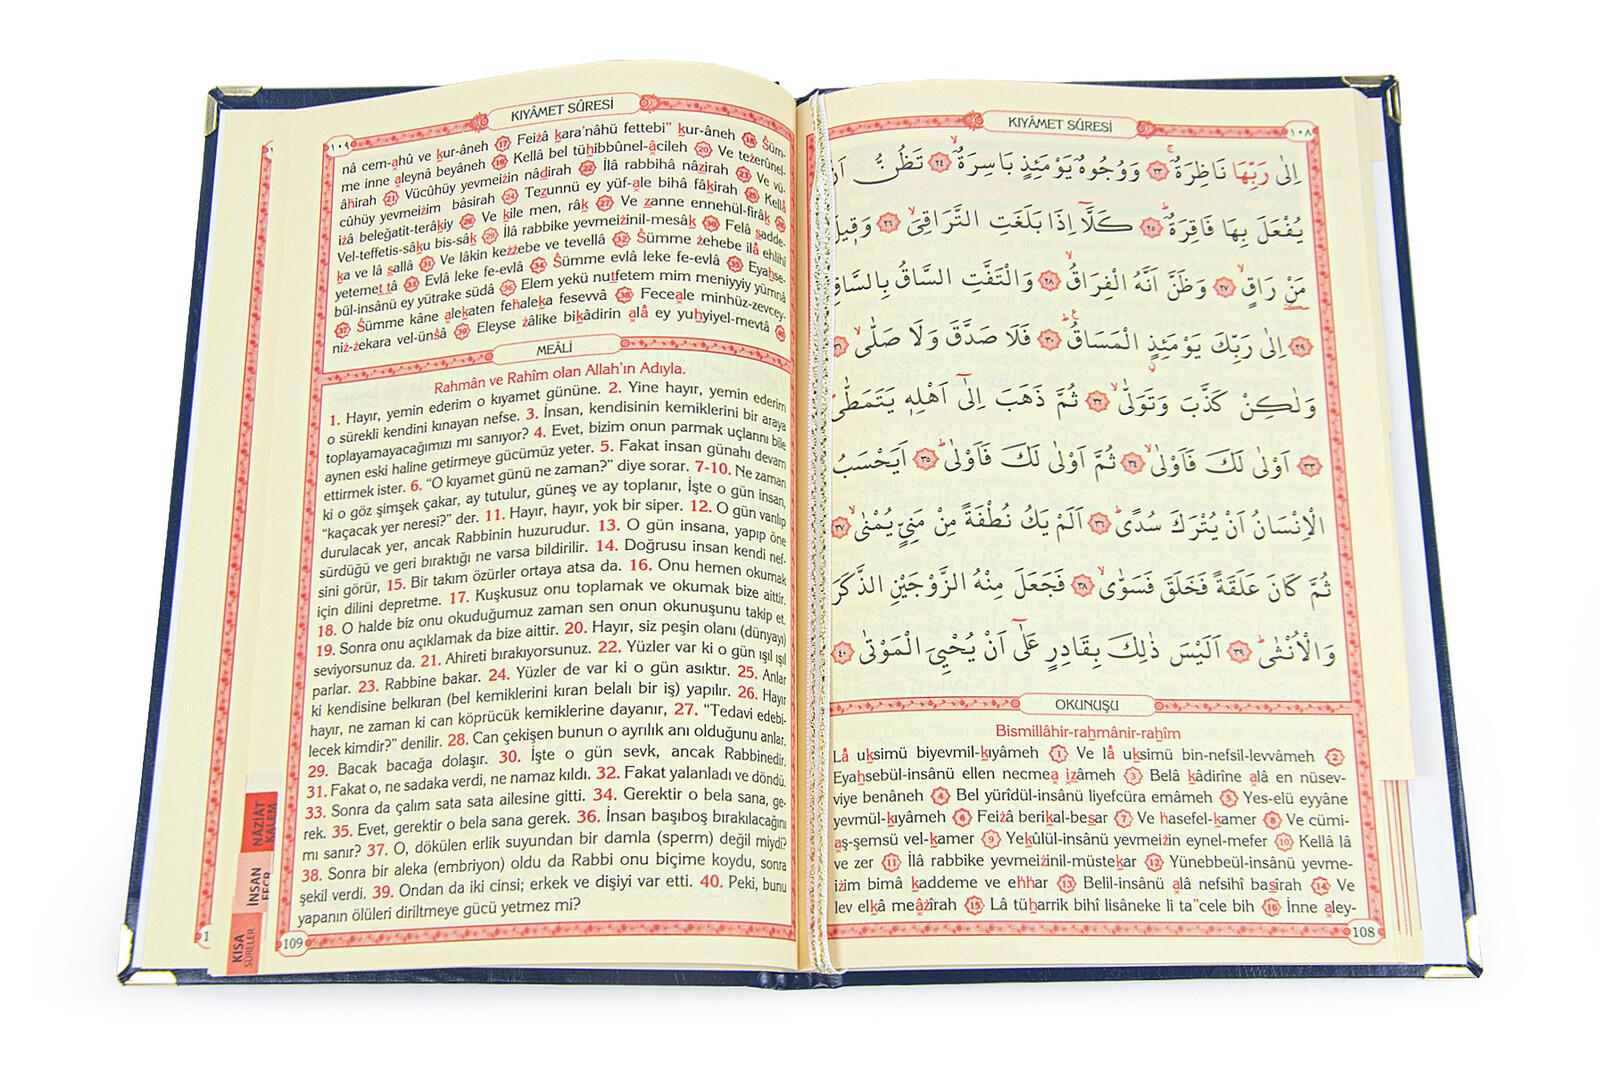 KIYÂMET SÛRESİ
١٠٨
اِلٰى رَبِّهَا نَاظِرَةٌ ٢٣ وَوُجُوهٌ يَوْمَئِذٍ بَاسِرَةٌ ٢٤ تَظُنُّ اَنْ
يُفْعَلَ بِهَا فَاقِرَةٌ ٢٥ كَلَّٓا اِذَا بَلَغَتِ التَّرَاقِيَ ٢٦ وَق۪يلَ
مَنْ رَاقٍ ٢٧ وَظَنَّ اَنَّهُ الْفِرَاقُ ٢٨ وَالْتَفَّتِ السَّاقُ بِالسَّاقِ
٢٩ اِلٰى رَبِّكَ يَوْمَئِذٍ الْمَسَاقُ ٣٠ فَلَا صَدَّقَ وَلَا صَلّٰى ٣١
وَلٰكِنْ كَذَّبَ وَتَوَلّٰى ٣٢ ثُمَّ ذَهَبَ اِلٰٓى اَهْلِه۪ يَتَمَطّٰى
٣٣ اَوْلٰى لَكَ فَاَوْلٰى ٣٤ ثُمَّ اَوْلٰى لَكَ فَاَوْلٰى ٣٥ اَيَحْسَبُ
الْاِنْسَانُ اَنْ يُتْرَكَ سُدًى ٣٦ اَلَمْ يَكُ نُطْفَةً مِنْ مَنِيٍّ يُمْنٰى ٣٧
ثُمَّ كَانَ عَلَقَةً فَخَلَقَ فَسَوّٰى ٣٨ فَجَعَلَ مِنْهُ الزَّوْجَيْنِ الذَّكَرَ
وَالْاُنْثٰى ٣٩ اَلَيْسَ ذٰلِكَ بِقَادِرٍ عَلٰٓى اَنْ يُحْيِيَ الْمَوْتٰى ٤٠
OKUNUŞU
Bismillâhir-raḥmânir-raḥîm
Lâ uḳsimü biyevmil-ḳıyâmeh 1 Ve lâ uḳsimü bin-nefsil-levvâmeh 2
Eyaḥsebül-insânü ellen necmea ıẓâmeh 3 Belâ ḳâdirîne alâ en nüsev-
viye benâneh 4 Bel yürîdül-insânü liyefcüra emâmeh 5 Yes-elü eyyâne
yevmül-ḳıyâmeh 6 Feiżâ beriḳal-beṣar 7 Ve ḣasefel-ḳamer 8 Ve cümi-
aş-şemsü vel-ḳamer 9 Yeḳûlül-insânü yevmeiżin eynel-mefer 10 Kellâ lâ
ve zer 11 İlâ rabbike yevmeiżinil-müsteḳar 12 Yünebbeül-insânü yevme-
iżim bimâ ḳaddeme ve eḣḣar 13 Belil-insânü alâ nefsihî baṣîrah 14 Ve
lev elḳâ meâżîrah 15 Lâ tüḥarrik bihî lisâneke li ta"cele bih 16 İnne aley-
108
KIYÂMET SÛRESİ
١٠٩
nâ cem-ahû ve ḳur-âneh 17 Feiżâ ḳara'nâhü fettebi" ḳur-âneh 18 Ŝüm-
me inne aleynâ beyâneh 19 Kellâ bel tüḥibbûnel-âcileh 20 Ve teżerûnel-
âḣirah 21 Vücûhüy yevmeiżin nâḍirah 22 İlâ rabbihâ nâẓirah 23 Ve vü-
cûhüy yevmeiżim bâsirah 24 Teẓunnü ey yüf-ale bihâ fâḳirah 25 Kellâ
iżâ beleğatit-terâḳiy 26 Ve ḳîle men, râḳ 27 Ve ẓanne ennehül-firâḳ 28
Vel-teffetis-sâḳu bis-sâḳ 29 İlâ rabbike yevmeiżinil-mesâḳ 30 Felâ ṣadde-
ḳa ve lâ ṣallâ 31 Ve lâkin keżżebe ve tevellâ 32 Ŝümme żehebe ilâ ehlihî
yetemeṭṭâ 33 Evlâ leke fe-evlâ 34 Ŝümme evlâ leke fe-evlâ 35 Eyaḥse-
bül-insânü ey yütrake südâ 36 Elem yekü nuṭfetem mim meniyyiy yümnâ
37 Ŝümme kâne aleḳaten feḣaleḳa fesevvâ 38 Feceale minhüz-zevcey-
niż-żekara vel-ünŝâ 39 Eleyse żâlike biḳâdirin alâ ey yuḥyiyel-mevtâ 40
MEÂLİ
Rahmân ve Rahîm olan Allah'ın Adıyla.
1. Hayır, yemin ederim o kıyamet gününe. 2. Yine hayır, yemin ederim
o sürekli kendini kınayan nefse. 3. İnsan, kendisinin kemiklerini bir araya
toplayamayacağımızı mı sanıyor? 4. Evet, bizim onun parmak uçlarını bile
aynen eski haline getirmeye gücümüz yeter. 5. Fakat insan günahı devam
ettirmek ister. 6. "O kıyamet günü ne zaman?" diye sorar. 7-10. Ne zaman
ki o göz şimşek çakar, ay tutulur, güneş ve ay toplanır, İşte o gün insan,
"kaçacak yer neresi?" der. 11. Hayır, hayır, yok bir siper. 12. O gün varılıp
durulacak yer, ancak Rabbinin huzurudur. 13. O gün insana, yapıp öne
sürdüğü ve geri bıraktığı ne varsa bildirilir. 14. Doğrusu insan kendi nef-
sini görür, 15. Bir takım özürler ortaya atsa da. 16. Onu hemen okumak
için dilini depretme. 17. Kuşkusuz onu toplamak ve okumak bize aittir.
18. O halde biz onu okuduğumuz zaman sen onun okunuşunu takip et.
19. Sonra onu açıklamak da bize aittir. 20. Hayır, siz peşin olanı (dünyayı)
seviyorsunuz da. 21. Ahireti bırakıyorsunuz. 22. Yüzler var ki o gün ışıl ışıl
parlar. 23. Rabbine bakar. 24. Yüzler de var ki o gün asıktır. 25. Anlar
ki kendisine belkıran (bel kemiklerini kıran belalı bir iş) yapılır. 26. Hayır
hayır, ne zaman ki can köprücük kemiklerine dayanır, 27. "Tedavi edebi-
lecek kimdir?" denilir. 28. Can çekişen bunun o ayrılık anı olduğunu anlar.
29. Bacak bacağa dolaşır. 30. İşte o gün sevk, ancak Rabbinedir.
31. Fakat o, ne sadaka verdi, ne namaz kıldı. 32. Fakat yalanladı ve döndü.
33. Sonra da çalım sata sata ailesine gitti. 34. Gerektir o bela sana, ge-
rek. 35. Evet, gerektir o bela sana gerek. 36. İnsan başıboş bırakılacağını
mı sanır? 37. O, dökülen erlik suyundan bir damla (sperm) değil miydi?
38. Sonra bir aleka (embriyon) oldu da Rabbi onu biçime koydu, sonra
şekil verdi. 39. Ondan da iki cinsi; erkek ve dişiyi var etti. 40. Peki, bunu
yapanın ölüleri diriltmeye gücü yetmez mi?
109
NÂZİÂT
KALEM
İNSAN
FECR
KISA
SÛRELER